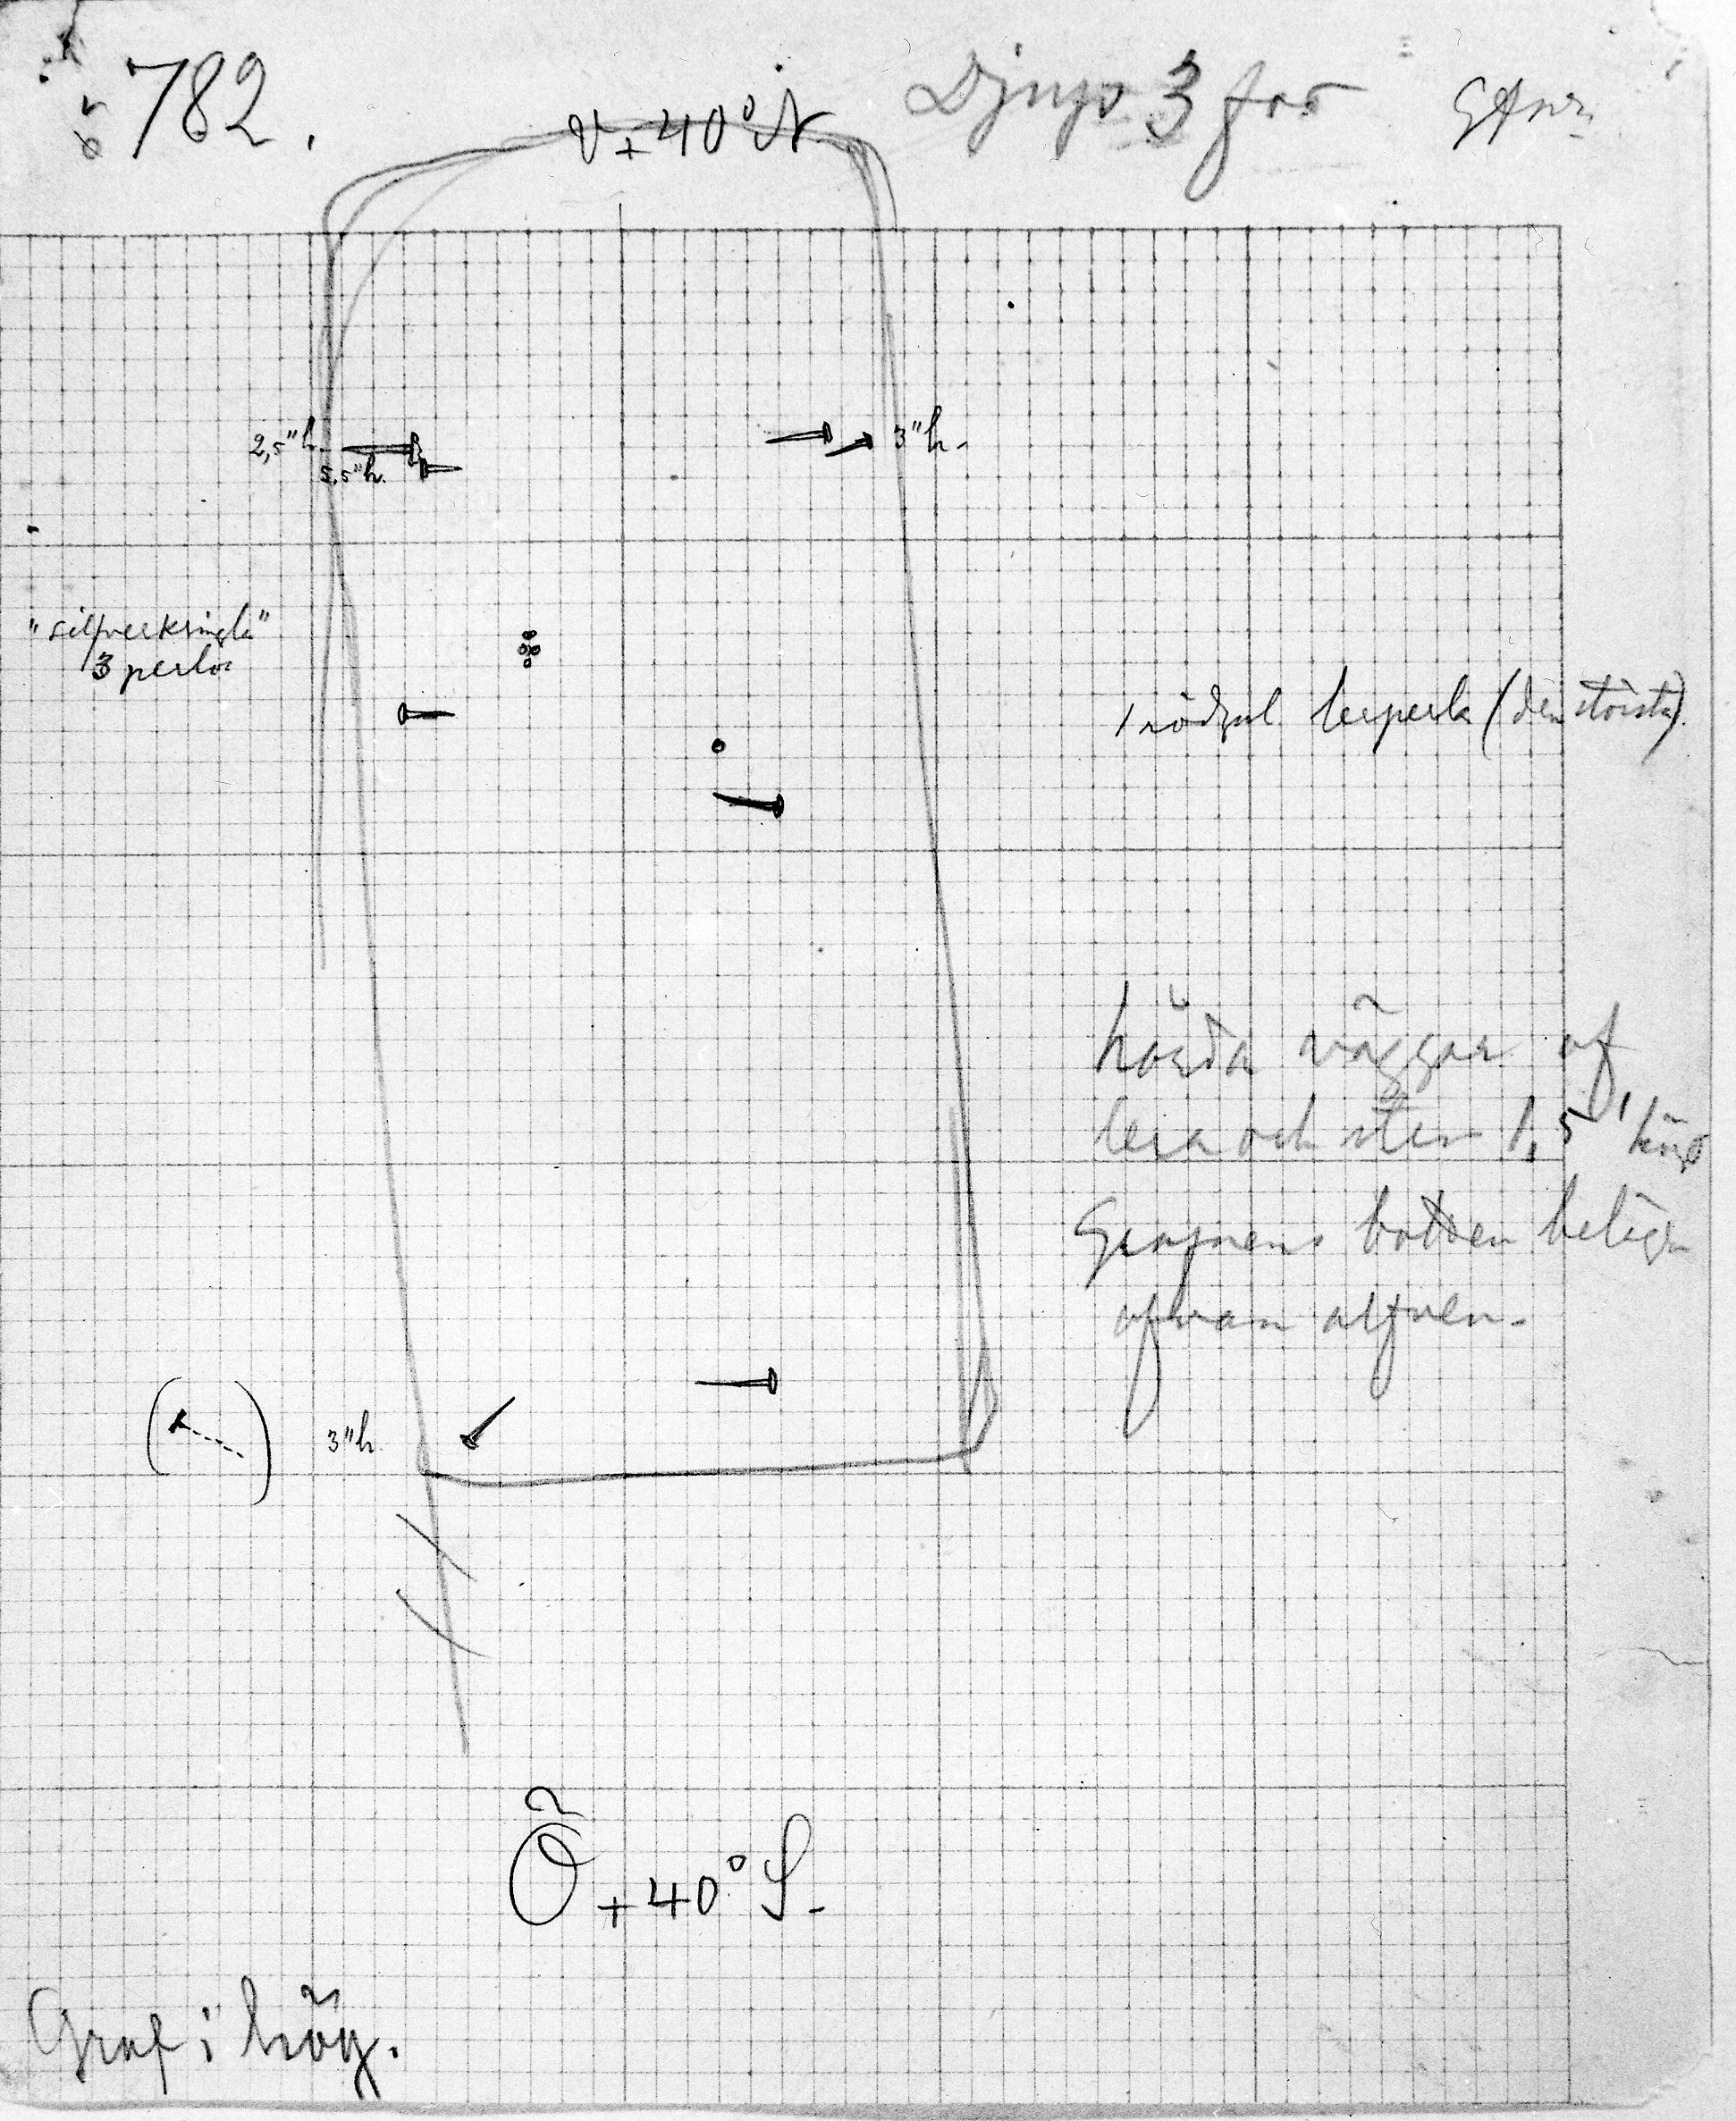 782.
V+40°N
Djup 3 fot
2,5"h.
5,5"h.
3"h.
"silfverkringla"
3 perlor
1 rödgul lerperla (den största).
hårda väggar af
lera och sten 1,5' högt
Grafvens botten belägen
ofvan alfven.
3"h.
Ö+40°S.
Graf i hög.